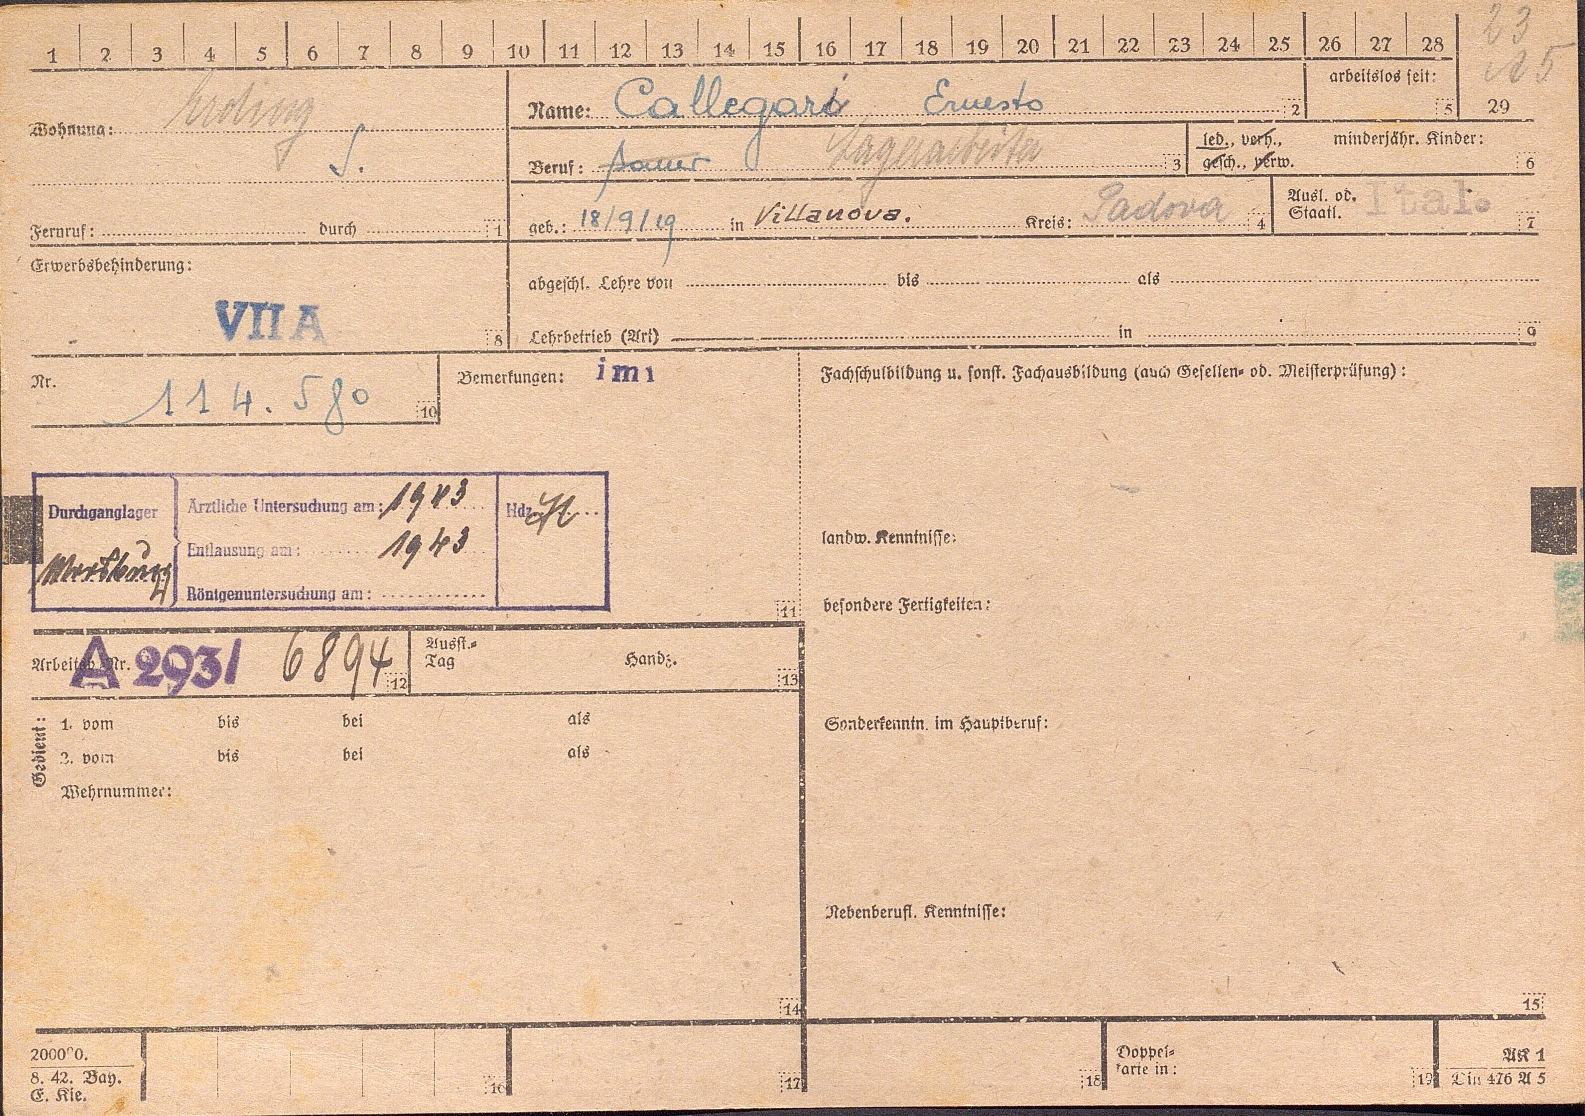 1 2 3 4 5 6 7 8 9 10 11 12 13 14 15 16 17 18 19 20 21 22 23 24 25 26 27 28 23
Wohnung: Erding
S.
Name: Callegari Ernesto 2
arbeitslos seit: 5
29
Beruf: Bauer Lagerarbeiter 3
led., verh.,
gesch., verw.
minderjähr. Kinder: 6
Fernruf: durch 1
geb.: 18/9/19 in Villanova. Kreis: Padova 4
Ausl. od.
Staatl. Ital. 7
Erwerbsbehinderung:
VII A 8
abgeschl. Lehre von bis als
Lehrbetrieb (Art) in 9
Nr. 114.580 10
Bemerkungen: imi
Fachschulbildung u. sonst. Fachausbildung (auch Gesellen- od. Meisterprüfung):
Durchganglager
Ärztliche Untersuchung am: 1943
Hdz.
Entlausung am: 1943
Röntgenuntersuchung am:
11
landw. Kenntnisse:
besondere Fertigkeiten:
Arbeitsb. Nr. A 293/ 6894 12
Ausst.-
Tag Handz. 13
Gedient:
1. vom bis bei als
2. vom bis bei als
Wehrnummer:
14
Sonderkenntn. im Hauptberuf:
Nebenberufl. Kenntnisse:
15
200000.
8. 42. Bay.
E. Kie.
16 17 18
Doppel-
karte in: 19
AK 1
Din 476 A 5